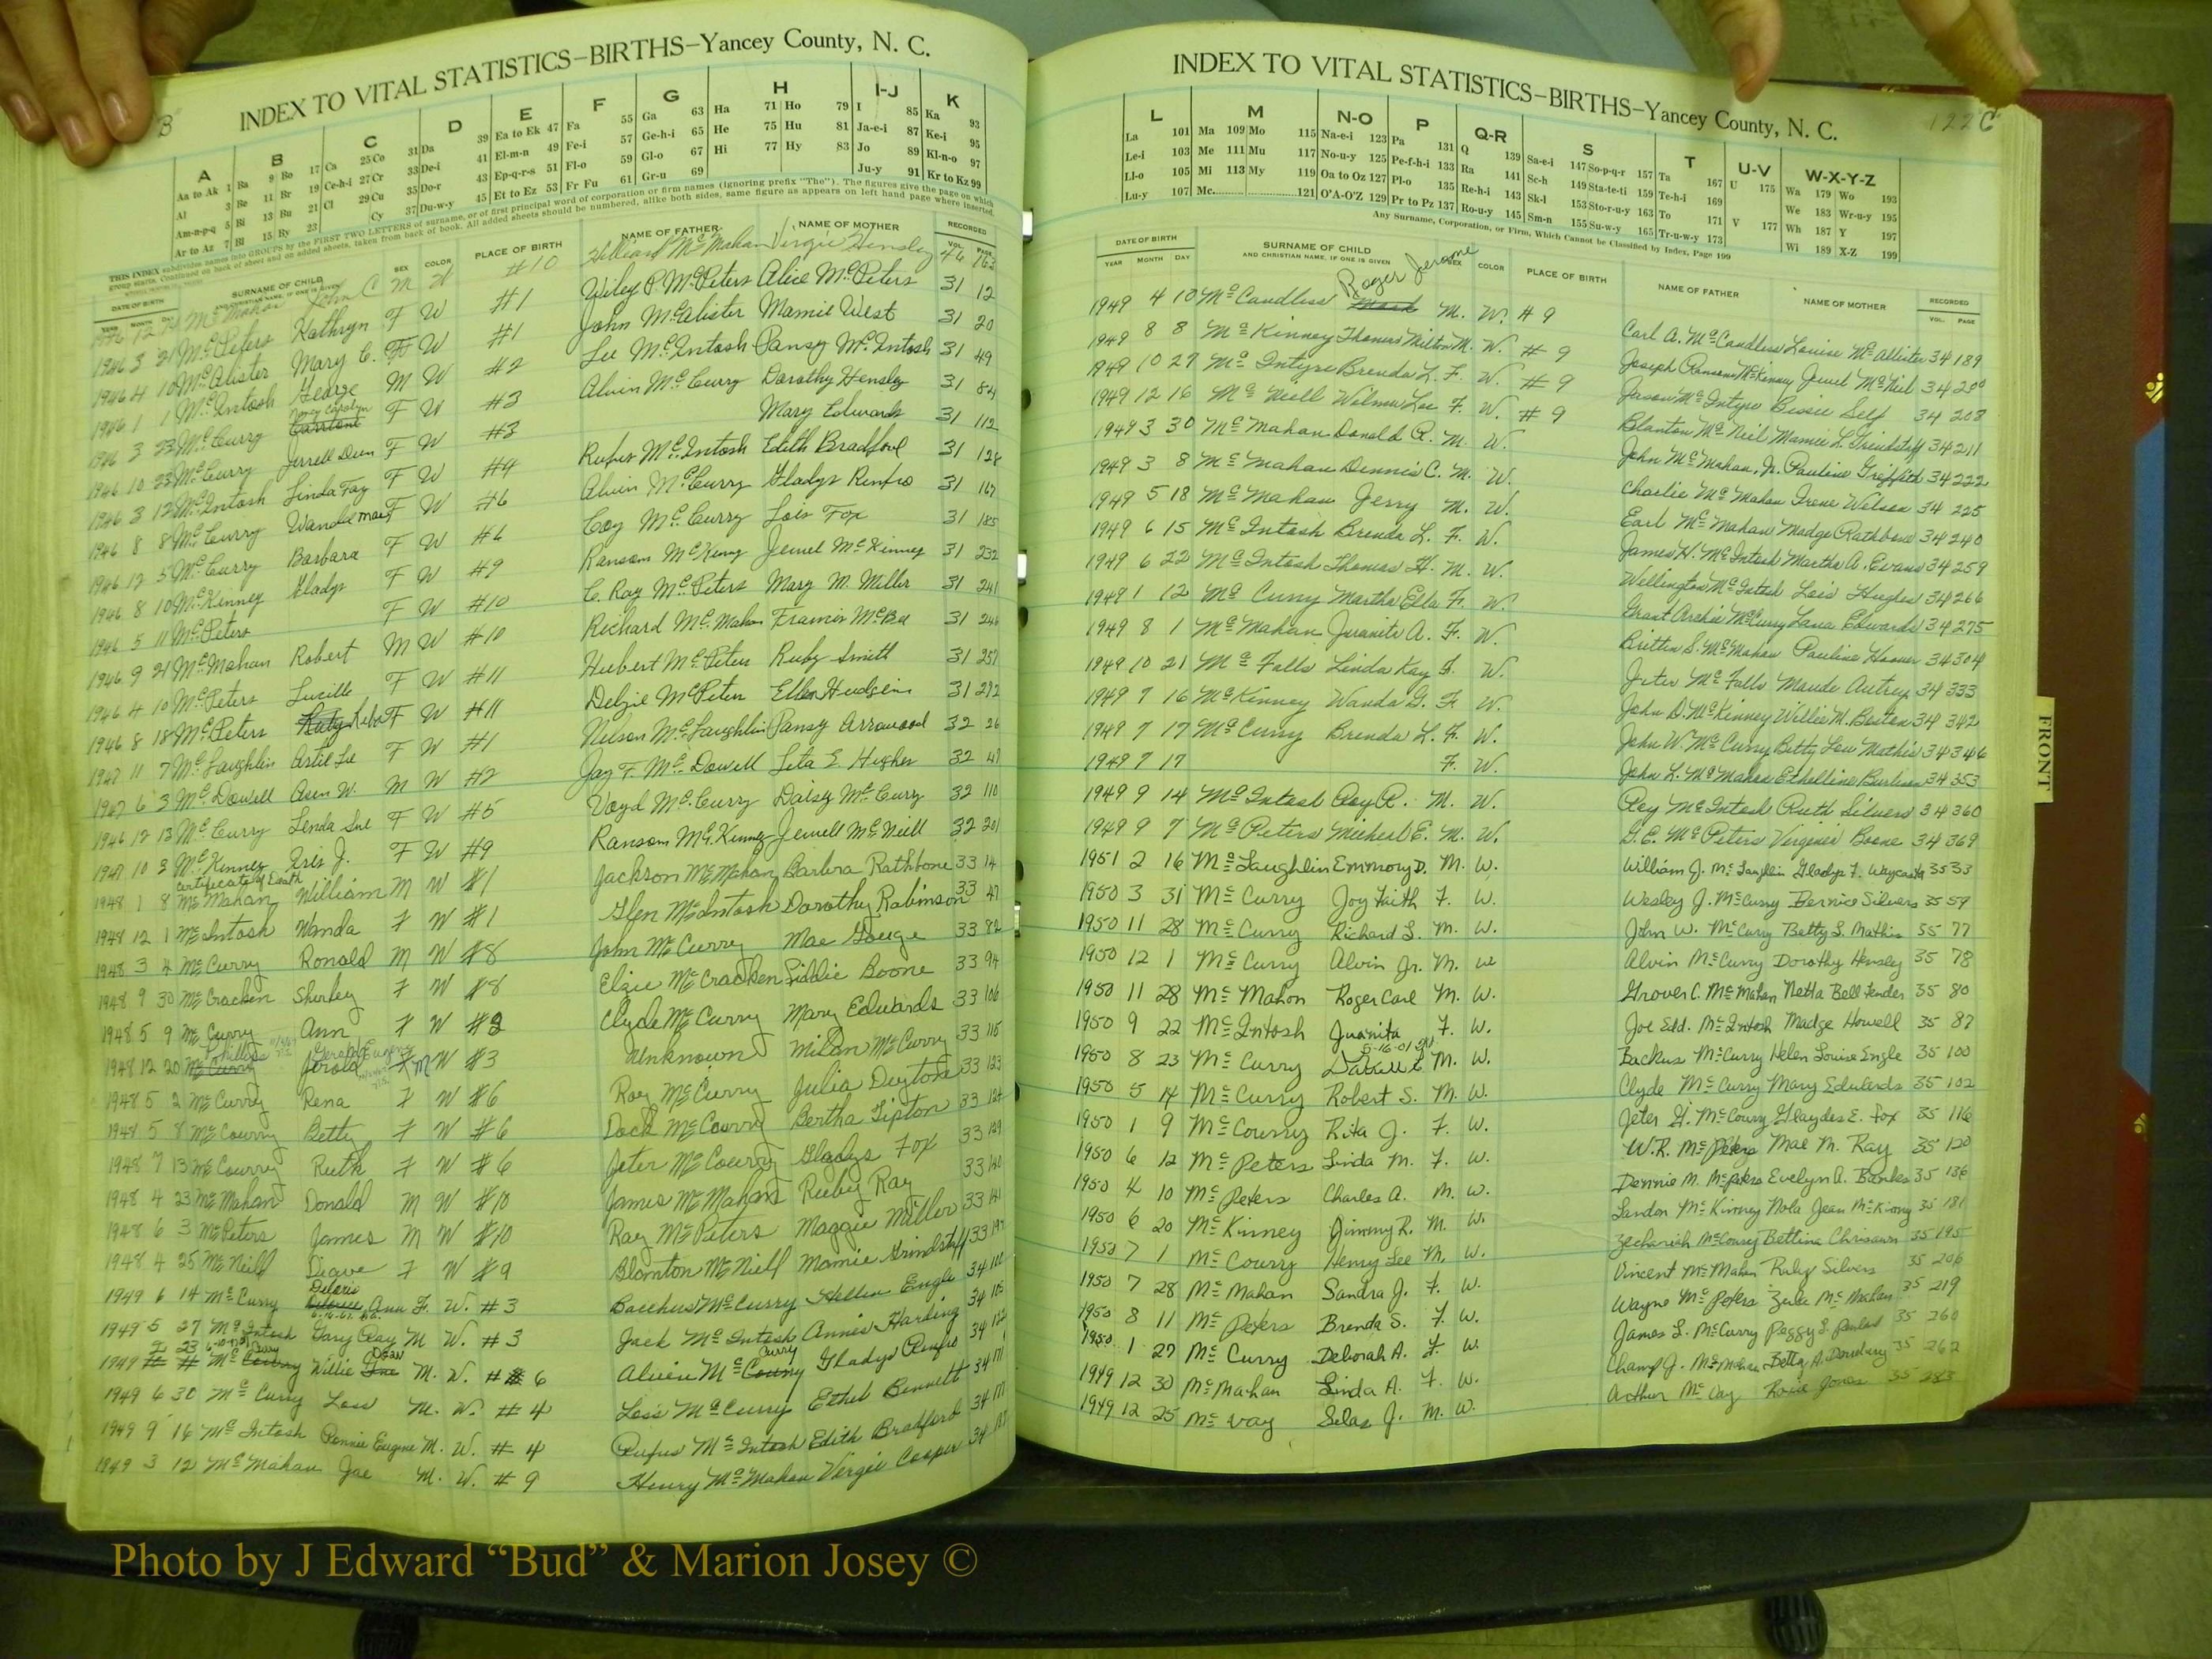 B
INDEX TO VITAL STATISTICS—BIRTHS—Yancey County, N. C.
A B C D E F G H I-J K
Aa to Ak 1 Ba 9 Bo 17 Ca 25 Co 31 Da 39 Ea to Ek 47 Fa 55 Ga 63 Ha 71 Ho 79 I 85 Ka 93
Al 3 Be 11 Br 19 Ce-h-i 27 Cr 33 De-i 41 El-m-n 49 Fe-i 57 Ge-h-i 65 He 75 Hu 81 Ja-e-i 87 Ke-i 95
Am-n-p-q 5 Bi 13 Bu 21 Cl 29 Cu 35 Do-r 43 Ep-q-r-s 51 Fl-o 59 Gl-o 67 Hi 77 Hy 83 Jo 89 Kl-n-o 97
Ar to Az 7 Bl 15 By 23 Cy 37 Du-w-y 45 Et to Ez 53 Fr Fu 61 Gr-u 69 Ju-y 91 Kr to Kz 99
THIS INDEX subdivides names into GROUPS by the FIRST TWO LETTERS of surname, or of first principal word of corporation or firm names (ignoring prefix "The"). The figures give the page on which
group starts. Continued on back of sheet and on added sheets, taken from back of book. All added sheets should be numbered, alike both sides, same figure as appears on left hand page where inserted.
DATE OF BIRTH SURNAME OF CHILD AND CHRISTIAN NAME, IF ONE IS GIVEN SEX COLOR PLACE OF BIRTH NAME OF FATHER NAME OF MOTHER RECORDED
YEAR MONTH DAY VOL. PAGE
McMahan John C M W #10 William McMahan Virgie Hensley 46 763
1946 3 21 McPeters Kathryn F W #1 Wiley P. McPeters Alice McPeters 31 12
1946 4 10 McAlister Mary C. F W #1 John McAlister Mamie West 31 20
1946 1 1 McIntosh George M W #2 Lee McIntosh Pansy McIntosh 31 49
1946 3 23 McCurry Nancy Carolyn F W #3 Alvin McCurry Dorothy Hensley 31 84
1946 10 23 McCurry Jerrell Dean F W #3 Mary Edwards 31 112
1946 3 12 McIntosh Linda Fay F W #4 Rufus McIntosh Edith Bradford 31 128
1946 8 8 McCurry Wanda Mae F W #6 Alvin McCurry Gladys Renfro 31 167
1946 12 5 McCurry Barbara F W #6 Coy McCurry Lois Fox 31 185
1946 8 10 McKinney Gladys F W #9 Ransom McKinney Jewel McKinney 31 232
1946 5 11 McPeters F W #10 C. Ray McPeters Mary M. Miller 31 241
1946 9 21 McMahan Robert M W #10 Richard McMahan Frances McBee 31 246
1946 4 10 McPeters Lucille F W #11 Hubert McPeters Ruby Smith 31 257
1946 8 18 McPeters Reba F W #11 McPeters Ellen Hudgins 31 272
1947 11 7 McLaughlin Lee F W #1 Nelson McLaughlin Pansy Arrowood 32 26
1947 6 3 McDowell W. M W #2 Jay F. McDowell Leta E Hughes 32 47
1946 12 13 McCurry Linda Sue F W #5 Voyd McCurry Daisy McCurry 32 110
1947 10 3 McKinney Iris J. F W #9 Ransom McKinney Jewell McNeill 32 201
Certificate of Death
1948 1 8 McMahan William M W #1 Jackson McMahan Barbara Rathbone 33 14
1948 12 1 McIntosh Wanda F W #1 Glen McIntosh Dorothy Robinson 33 47
1948 3 4 McCurry Ronald M W #8 John McCurry Mae Gouge 33 82
1948 9 30 McCracken Shirley F W #8 McCracken Siddie Boone 33 94
1948 5 9 McCurry Ann F W #3 Clyde McCurry Mary Edwards 33 106
1948 12 20 Phillips McCurry Gerald Eugene Jerold F M W #3 Unknown McCurry 33 115
1948 5 2 McCurry Rena F W #6 Roy McCurry Julia Deyton 33 123
1948 5 8 McCourry Betty F W #6 Dock McCourry Bertha Tipton 33 124
1948 7 13 McCourry Ruth F W #6 Jeter McCourry Gladys Fox 33 129
1948 4 23 McMahan Donald M W #10 James McMahan Ruby Ray 33 140
1948 6 3 McPeters James M W #10 Ray McPeters Maggie Miller 33 141
1948 4 25 McNeill F W #9 Blanton McNeill Mamie Grindstaff 33
1949 6 14 McCurry Deloris Ann F. W. #3 McCurry Engle 34
1949 5 27 McIntosh Gary Ray M W. #3 Jack McIntosh Annis 34
1949 McCurry Willie Dean M. W. #6 Alvin McCurry Gladys Renfro 34
1949 6 30 McCurry Loss M. W. #4 Loss McCurry Ethel Bennett 34
1949 9 16 McIntosh Ronnie Eugene M. W. #4 Rufus McIntosh Edith Bradford 34
1949 3 12 McMahan Joe M. W. #9 Henry McMahan Vergie Cooper 34
122 C
INDEX TO VITAL STATISTICS—BIRTHS—Yancey County, N. C.
L M N-O P Q-R S T U-V W-X-Y-Z
La 101 Ma 109 Mo 115 Na-e-i 123 Pa 131 Q 139 Sa-e-i 147 So-p-q-r 157 Ta 167 U 175 Wa 179 Wo 193
Le-i 103 Me 111 Mu 117 No-u-y 125 Pe-f-h-i 133 Ra 141 Sc-h 149 Sta-te-ti 159 Te-h-i 169 We 183 Wr-u-y 195
Ll-o 105 Mi 113 My 119 Oa to Oz 127 Pl-o 135 Re-h-i 143 Sk-l 153 Sto-r-u-y 163 To 171 V 177 Wh 187 Y 197
Lu-y 107 Mc 121 O'A-O'Z 129 Pr to Pz 137 Ro-u-y 145 Sm-n 155 Su-w-y 165 Tr-u-w-y 173 Wi 189 X-Z 199
Any Surname, Corporation, or Firm, Which Cannot be Classified by Index, Page 199
DATE OF BIRTH SURNAME OF CHILD AND CHRISTIAN NAME, IF ONE IS GIVEN SEX COLOR PLACE OF BIRTH NAME OF FATHER NAME OF MOTHER RECORDED
YEAR MONTH DAY VOL. PAGE
1949 4 10 McCandless Roger Jerome M. W. #9 Carl A. McCandless Louise McAllister 34 189
1949 8 8 McKinney Thomas Milton M. W. #9 Joseph Ransom McKinney Jewel McNeil 34 200
1949 10 27 McIntyre Brenda L. F. W. #9 Jason McIntyre Bessie Self 34 208
1949 12 16 McNeill Wilma Lee F. W. #9 Blanton McNeil Mamie L. Grindstaff 34 211
1949 3 30 McMahan Donald R. M. W. John McMahan, Jr. Pauline Griffith 34 222
1949 3 8 McMahan Dennis C. M. W. Charlie McMahan Irene Wilson 34 225
1949 5 18 McMahan Jerry M. W. Earl McMahan Madge Rathbone 34 240
1949 6 15 McIntosh Brenda L. F. W. James H. McIntosh Martha A. Evans 34 259
1949 6 22 McIntosh Thomas H. M. W. Wellington McIntosh Lois Hughes 34 266
1949 1 12 McCurry Martha Ella F. W. Grant Archie McCurry Lana Edwards 34 275
1949 8 1 McMahan Juanita A. F. W. Britten S. McMahan Pauline Hoover 34 304
1949 10 21 McFalls Linda Kay F. W. Jeter McFalls Maude Autrey 34 333
1949 7 16 McKinney Wanda G. F. W. John D. McKinney Willie M. Boston 34 342
1949 7 17 McCurry Brenda L. F. W. John W. McCurry Betty Lou Mathis 34 346
1949 7 17 F. W. John L. McMahan Ethelline Burleson 34 353
1949 9 14 McIntosh Roy R. M. W. Roy McIntosh Ruth Silvers 34 360
1949 9 7 McPeters Micheal E. M. W. G. E. McPeters Virginia Boone 34 369
1951 2 16 McLaughlin Emmory D. M. W. William J. McLaughlin Gladys F. Waycaster 35 33
1950 3 31 McCurry Joy Faith F. W. Wesley J. McCurry Bernice Silvers 35 59
1950 11 28 McCurry Richard L. M. W. John W. McCurry Betty L. Mathis 35 77
1950 12 1 McCurry Alvin Jr. M. W Alvin McCurry Dorothy Hensley 35 78
1950 11 28 McMahon Roger Carl M. W. Grover C. McMahan Netta Bell Fender 35 80
1950 9 22 McIntosh Juanita F. W. Joe Edd. McIntosh Madge Howell 35 87
1950 8 23 McCurry 5-16-01 M. W. Backus McCurry Helen Louise Engle 35 100
1950 5 14 McCurry Robert S. M. W. Clyde McCurry Mary Edwards 35 102
1950 1 9 McCourry Rita J. F. W. Jeter G. McCourry Glaydes E. Fox 35 116
1950 6 12 McPeters Linda M. F. W. W.R. McPeters Mae M. Ray 35 120
1950 4 10 McPeters Charles A. M. W. Dennie M. McPeters Evelyn A. Banks 35 136
1950 6 20 McKinney Jimmy R. M. W. Landon McKinney Nola Jean McKinney 35 181
1950 7 1 McCourry Henry Lee M. W. Zechariah McCourry Bettina Chrisawn 35 195
1950 7 28 McMahan Sandra J. F. W. Vincent McMahan Ruby Silvers 35 206
1950 8 11 McPeters Brenda S. F. W. Wayne McPeters McMahan 35 219
1950 1 27 McCurry Deborah A. F W. James L. McCurry Peggy L. Penland 35 260
1949 12 30 McMahan Linda A. F. W. Champ J. McMahan Betty A. 35 262
1949 12 25 McVay Silas J. M. W. Arthur McVay Rosie Jones 35 283
FRONT
Photo by J Edward “Bud” & Marion Josey ©